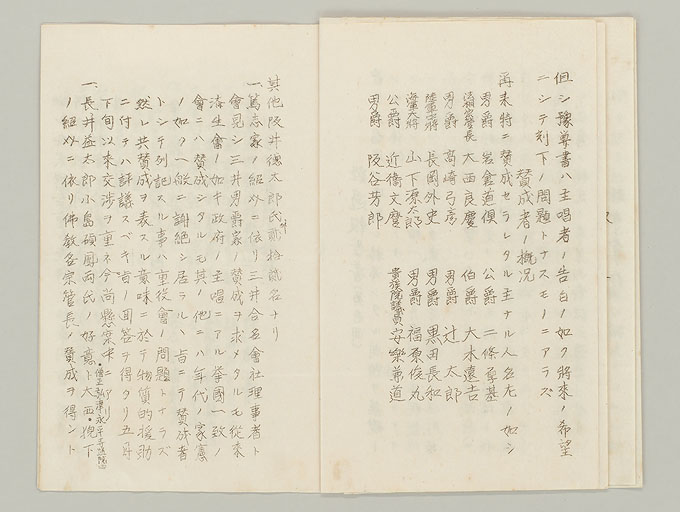 但シ豫算書ハ主唱者ノ告白ノ如ク將來ノ希望
ニシテ刻下ノ問題トナスモノニアラズ
賛成者ノ概況
再來特ニ賛成セラレタル主ナル人名左ノ如シ
男爵 岩倉道倶 公爵 二條厚基
法相宗管長 大西良慶 伯爵 大木遠吉
男爵 高崎弓彦 男爵 辻太郎
陸軍中將 長岡外史 男爵 黒田長和
海軍大將 山下源太郎 男爵 福原俊丸
公爵 近衞文麿 貴族院議員 安樂兼道
男爵 阪谷芳郎
其他阪井德太郎氏外貳拾貳名ナリ
一、篤志家ノ紹介ニ依リ三井合名會社理事者ト
會見シ三井男爵家ノ賛成ヲ求メタルモ從來
濟生會ノ如キ政府ノ主唱ニアル擧國一致ノ
會ニハ賛成シタルモ其ノ他ニハ年代ノ家憲
ノ如ク一縱ニ謝絶シ居ラルヽ旨ニテ賛成者
トシテ列記スル事ハ重役會ノ問題トナラズ
然レ共賛成ヲ表スル意味ニ於テ物質的援助
ニ付テハ評議スベキ旨ノ回答ヲ得タリ五月
下旬以來交渉ヲ重ネ今尚懸案中ニアリ
一、長井益太郎小島碩鳳両氏ノ好意ト大西・
ノ紹介ニ依リ佛敎各宗管長ノ賛成ヲ得ント